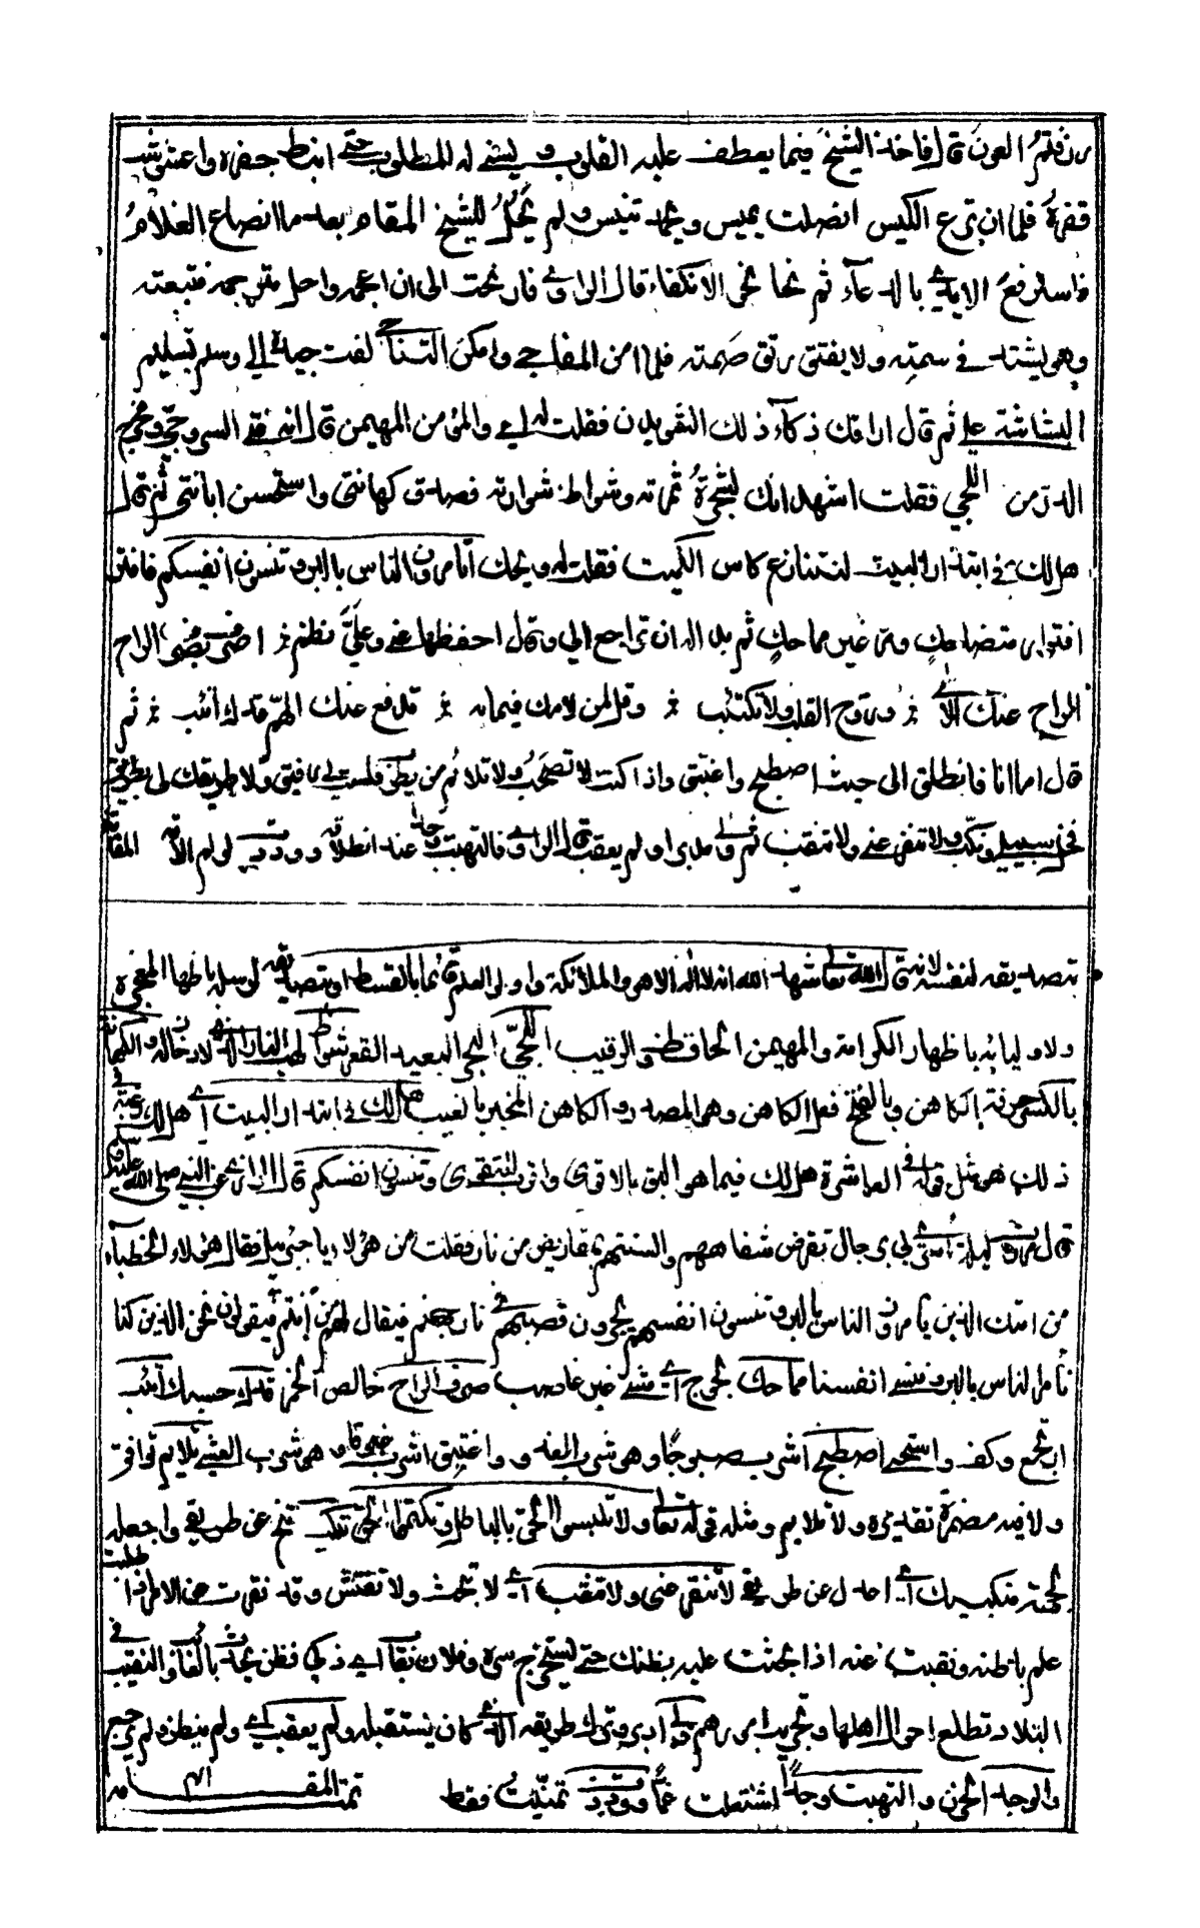 رزقتم العون قال فاخذ الشيخ فيما يعطف عليه القلوب ويسني له المطلوب حتى انبط حفره واعشوشب
قفره فلما ان ترع الكيس انصلت يميس ويحمد تنيس ولم يحل للشيخ المقام بعد ما انصاع الغلام
فاسترفع الايدي بالدعاء ثم نحا نحو الانكفاء قال الراوي فارتحت الى ان اعجمه واحل مترجمه فتبعته
وهو يشتد في سمته ولا يفتق رتق صمته فلما امن المفاجي وامكن التناجي لفت جيده الي وسلم تسليم
البشاشة علي ثم قال اراقك ذكاء ذلك الشويدن فقلت له اي والمؤمن المهيمن قال انه فتى السروجي ومخرج
الدر من اللجي فقلت اشهد انك لشجرة ثمرته وشواظ شرارته فصدق كهانتي واستحسن ابانتي ثم قال
هل لك في ابتدار البيت لنتنازع كاس الكميت فقلت له ويحك اتامرون الناس بالبر وتنسون انفسكم فافتر
افترار متضاحك ومر غير مماحك ثم بدا له ان تراجع الي وقال احفظها عني وعلي نظم اصرف بصرف الراح
عنك الاسى وروح القلب ولا تكتئب وقل لمن لامك فيما به تدفع عنك الهم قدك اتئب ثم
قال اما انا فانطلق الى حيث اصطبح واغتبق واذا كنت لا تصحب ولا تلائم من يطرب فلست لي برفيق ولا طريقك لي بطريق
فخل سبيلي ونكب ولا تنقر عني ولا تنقب ثم ولى مدبرا ولم يعقب قال الراوي فالتهبت وجدا عند انطلاقه ووددت لو لم الاقه المقامة
بتصديقه لنفسه لانه قال الله تعالى شهد الله انه لا اله الا هو والملائكة واولوا العلم قائما بالقسط او بتصديقه لرسله باظهار المعجزة
ولاوليائه باظهار الكرامة والمهيمن الحافظ والرقيب اللجي البحر البعيد القعر شواظ لهب النار الذي لا دخان له الكهانة
بالكسر حرفة الكاهن وبالفتح فعل الكاهن وهو المصدر والكاهن المخبر بالغيب هل لك في ابتدار البيت اي هل لك رغبة في
ذلك هو مثل قوله في العاشرة هل لك فيما هو اليق بالاقوى واقرب للتقوى وتنسون انفسكم قال الرازي عن النبي صلى الله عليه وسلم
قال مررت ليلة اسري بي برجال تقرض شفاههم والسنتهم بمقاريض من نار فقلت من هؤلاء يا جبريل فقال هؤلاء الخطباء
من امتك الذين يامرون الناس بالبر وتنسون انفسهم يجرون قصبهم في نار جهنم فيقال لهم من انتم فيقولون نحن الذين كنا
نامر الناس بالبر وننسى انفسنا مماحك لجوج اي مشى غير غاضب صرف الراح خالص الخمر قدك حسبك اتئب
ارتجع وكف واستحي اصطبح اشرب صبوحا وهو شرب الغدو واغتبق اشرب غبوقا وهو شرب العشي يلايم توافق
ولا فيه مضمرة تقديره ولا تلايم ومثله قوله تعالى ولا تلبسوا الحق بالباطل وتكتموا الحق نكب تنح عن طريقي واجعله
لجهة منكبيك اي اعدل عن طريقي لا تنقر عني ولا تنقب اي لا تبحث ولا تفتش وقد نقرت عن الامر اذا طلبت
علم باطنه ونقبت عنه اذا بحثت عليه بظنك حتى تستخرج سره وفلان نقاب اي ذكي فطن يحدث بالغائب والنقيب في
البلاد تطلع احوال اهلها وتجري ادبارهم ولى ادبر وترك طريقه الذي كان يستقبله ولم يعقب اي ولم ينظر ولم يرجع
والوجد الحزن والتهبت وجدا اشتعلت غما ووددت تمنيت فقط تمت المقامة